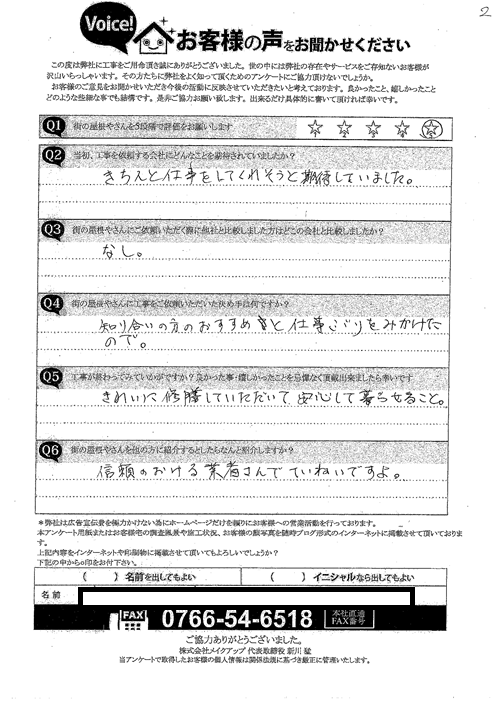 2
Voice!
お客様の声をお聞かせください
この度は弊社に工事をご用命頂き誠にありがとうございました。世の中には弊社の存在やサービスをご存知ないお客様が
沢山いらっしゃいます。その方たちに弊社をよく知って頂くためのアンケートにご協力頂けないでしょうか。
お客様のご意見をお聞かせいただき今後の活動に反映させていただきたいと考えております。良かったこと、嬉しかったこと
どのような些細な事でも結構です。是非ご協力お願い致します。出来るだけ具体的に書いて頂ければ幸いです。
Q1 街の屋根やさんを5段階で評価をお願いします
1 2 3 4 5
Q2 当初、工事を依頼する会社にどんなことを期待されていましたか?
きちんと仕事をしてくれそうと期待していました。
Q3 街の屋根やさんにご依頼いただく際に他社と比較しました方はどこの会社と比較しましたか?
なし。
Q4 街の屋根やさんに工事をご依頼いただいた決め手は何ですか?
知り合いの方のおすすめと仕事ぶりをみかけた
ので。
Q5 工事が終わってみていかがですか?良かった事・嬉しかったことを忌憚なく頂戴出来ましたら幸いです
きれいに修勝していただいて安心して暮らせること。
Q6 街の屋根やさんを他の方に紹介するとしたらなんと紹介しますか?
信頼のおける業者さんでていねいですよ。
*弊社は広告宣伝費を極力かけない為にホームページだけを頼りにお客様への営業活動を行っております。
本アンケート用紙またはお客様宅の調査風景や施工状況、お客様の顔写真を随時ブログ形式のインターネットに掲載させて頂いておりま
す。
上記内容をインターネットや印刷物に掲載させて頂いてもよろしいでしょうか?
下記の中から○印をお付下さい。
( )名前を出してもよい ( )イニシャルなら出してもよい
名前
FAX 0766-54-6518 本社直通FAX番号
ご協力ありがとうございました。
株式会社メイクアップ 代表取締役 新川 猛
当アンケートで取得したお客様の個人情報は関係法規に基づき厳正に管理いたします。